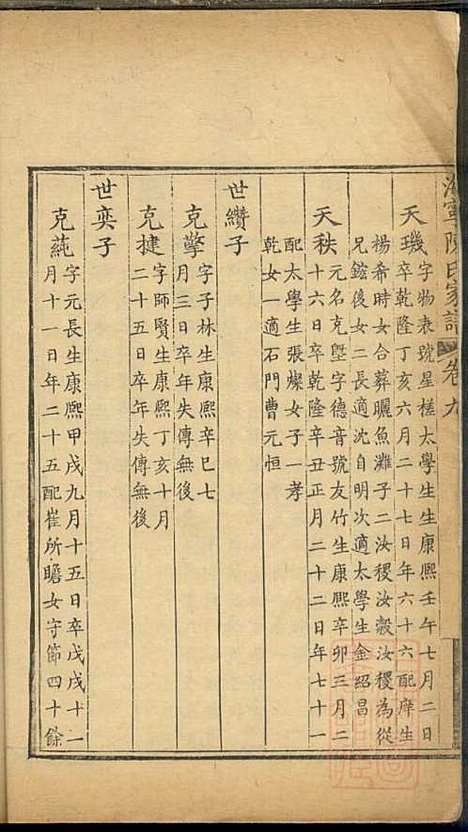 海寧陳氏家譜 卷九
天璣 字物表號星槎太學生生康熙壬午七月二日
卒乾隆丁亥六月二十七日年六十六配庠生
楊希時女合葬曬魚灘子二汝稷汝穀汝稷為從
兄鎡後女二長適沈自明次適太學生金紹昌
天秩 元名克塈字德音號友竹生康熙辛卯三月二
十六日卒乾隆辛丑正月二十二日年七十一
配太學生張燦女子一孝
乾女一適石門曹元恒
世纘子
克擎 字子林生康熙辛巳七
月三日卒年失傳無後
克捷 字師賢生康熙丁亥十月
二十五日卒年失傳無後
世奕子
克蒓 字元長生康熙甲戌九月十五日卒戊戌十一
月十一日年二十五配崔所瞻女守節四十餘